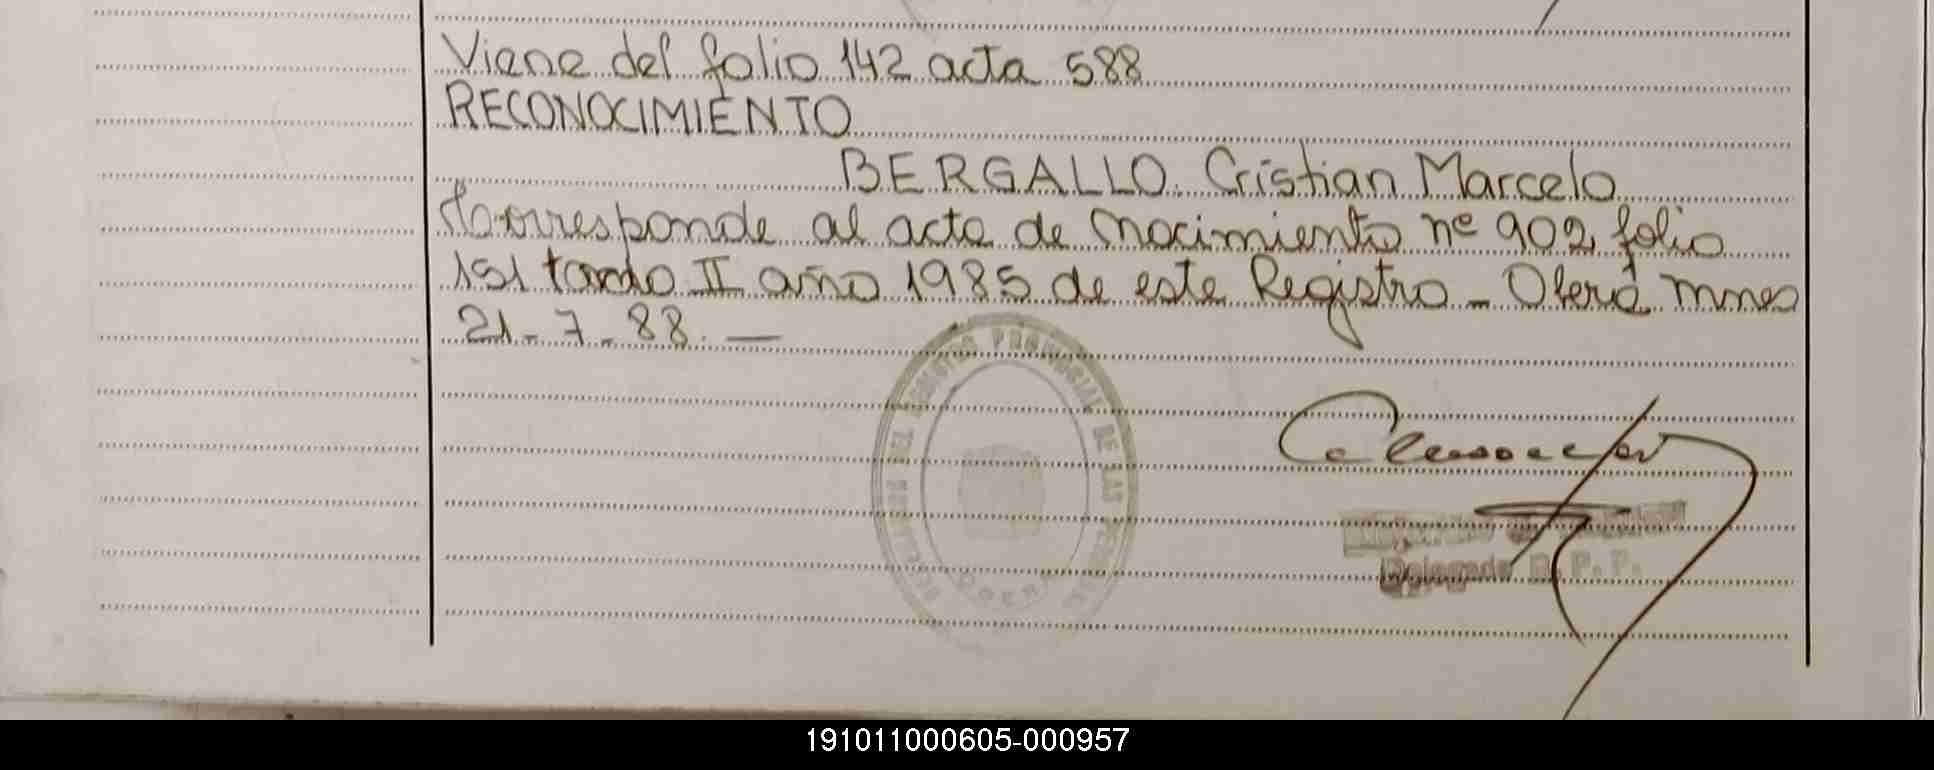 Viene del folio 142 acta 588
RECONOCIMIENTO
BERGALLO. Cristian Marcelo
Corresponde al acta de Nacimiento nº 902, folio
151 tomo II año 1985 de este Registro - Oberá Mnes
21-7-88. —
PROVINCIAL DE LAS
Delegada R. P. P.
191011000605-000957